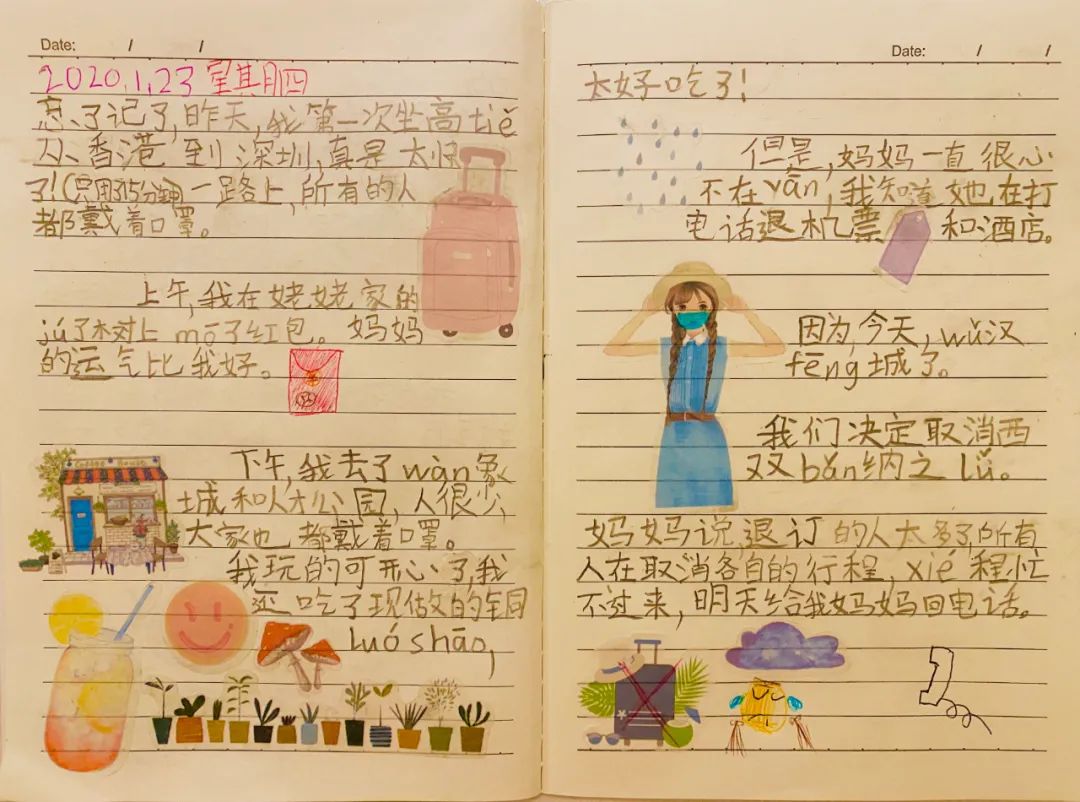 Date: / /
2020.1.23 星期四
忘了记了,昨天,我第一次坐高tiě
从香港到深圳,真是太快
了!(只用了15分钟)一路上,所有的人
都戴着口罩。
上午,我在姥姥家的
jú子树上mō了红包。妈妈
的运气比我好。
Coffee House
下午,我去了wàn象
城和人才公园,人很少,
大家也都戴着口罩。
我玩的可开心了,我
还吃了现做的铜
luó shāo,
Date: / /
太好吃了!
但是,妈妈一直很心
不在yān,我知道她在打
电话退机票和酒店。
因为,今天,wǔ汉
fēng城了。
我们决定取消西
双bǎn纳之lǚ。
妈妈说,退订的人太多了,所有
人在取消各自的行程,xié程忙
不过来,明天给我妈妈回电话。